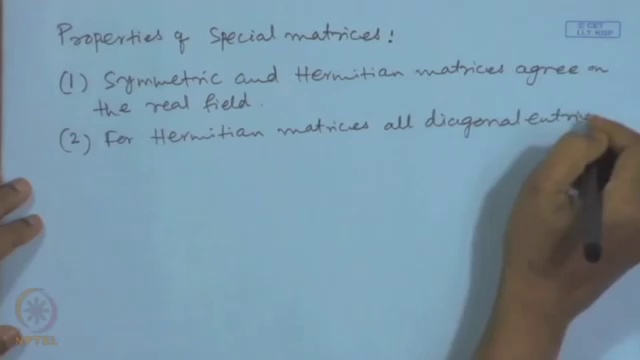 Properties of Special matrices:
(1) Symmetric and Hermitian matrices agree on
the real field.
(2) For Hermitian matrices all diagonal entri
© CET
I.I.T. KGP
NPTEL